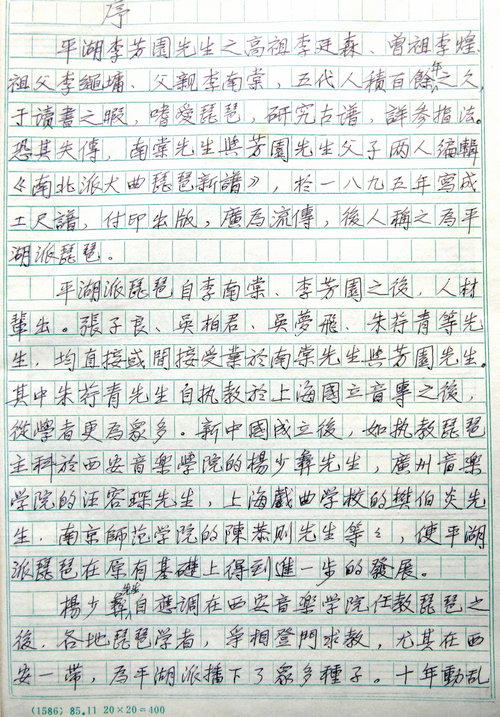 序
平湖李芳園先生之高祖李廷森、曾祖李煌、
祖父李繩墉、父親李南棠,五代人積百餘年之久,
于讀書之暇,嗜愛琵琶,研究古谱,詳參指法。
恐其失傳,南棠先生與芳園先生父子两人編輯
《南北派大曲琵琶新譜》,於一八九五年寫成
工尺譜,付印出版,廣爲流傳,後人稱之爲平
湖派琵琶。
平湖派琵琶自李南棠、李芳園之後,人材
輩出。張子良、吳柏君、吳夢飛、朱荇青等先
生,均直接或間接受業於南棠先生與芳園先生。
其中朱荇青先生自执教於上海國立音專之後,
從學者更爲眾多。新中國成立後,如执教琵琶
主科於西安音樂學院的楊少彝先生,廣州音樂
学院的汪容琛先生,上海戲曲学校的樊伯炎先
生,南京師范学院的陳恭則先生等々,使平湖
派琵琶在原有基礎上得到進一步的發展。
楊少彝先生自應调在西安音樂学院任教琵琶之
後,各地琵琶学者,爭相登門求教,尤其在西
安一带,爲平湖派播下了眾多種子。十年動乱
(1586) 85.11 20×20=400